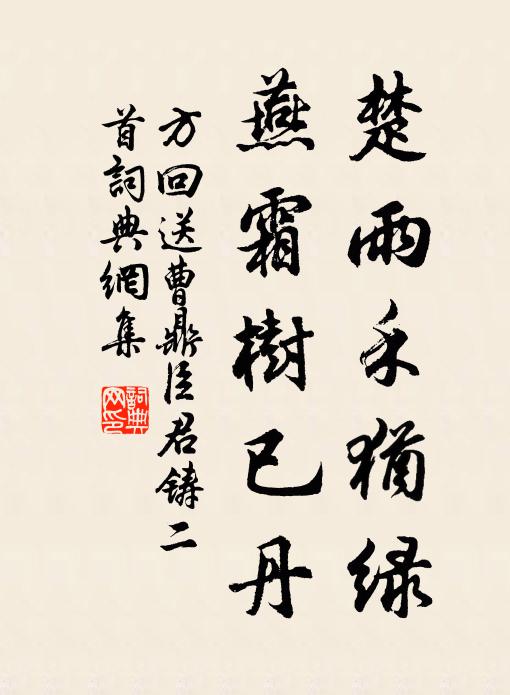 楚雨禾猶緑
燕霜樹已丹
方回送曹鼎臣君鑄二
首詞典網集
詞典网印